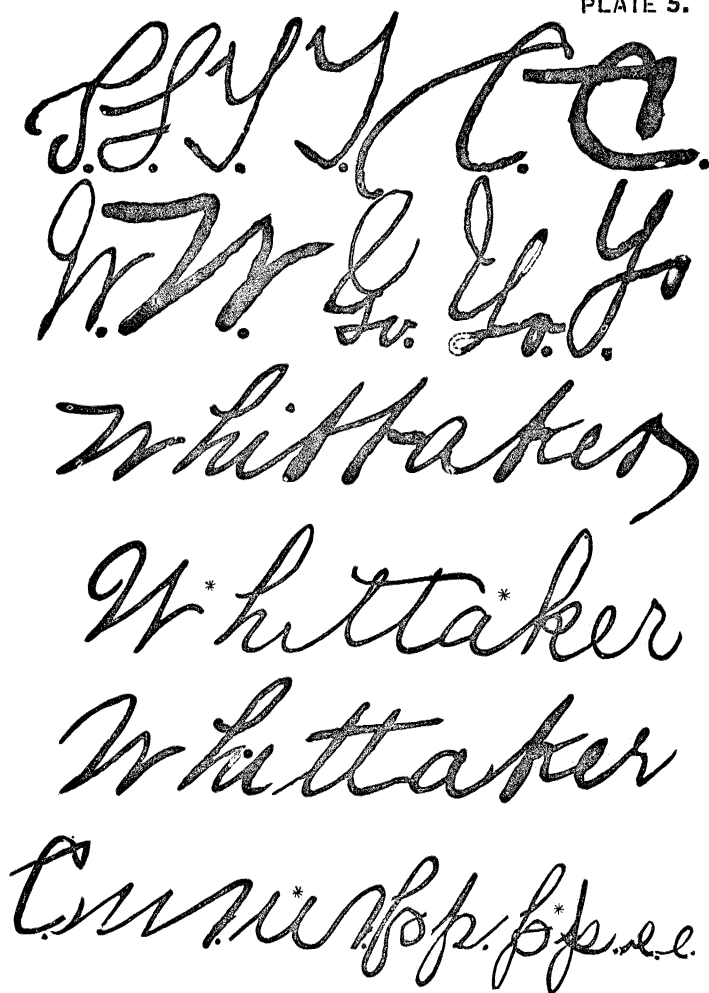 PLATE 5.
S. S. Y. Y. C. C.
W. W. Yo. Yo. Yo.
Whittaker
W*hitta*ker
Whittaker
C. n n. n*u. p p. p*p. e. e. e.